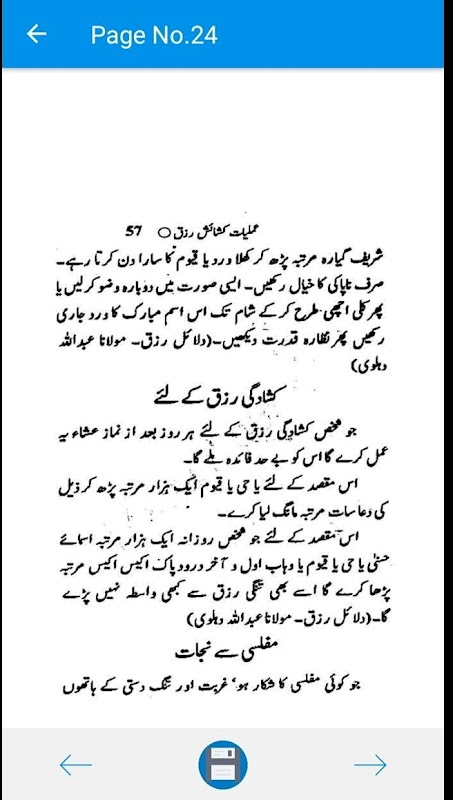 Page No.24
عملیات کشائش رزق ○ 57
شریف گیارہ مرتبہ پڑھ کر کھلا ورد یا قیوم کا سارا دن کرتا رہے۔
صرف ناپاکی کا خیال رکھیں۔ ایسی صورت میں دوبارہ وضو کرلیں یا
پھر کلی اچھی طرح کر کے شام تک اس اسم مبارک کا ورد جاری
رکھیں پھر نظارہ قدرت دیکھیں۔(دلائل رزق۔ مولانا عبداللہ
دہلوی)
کشادگی رزق کے لئے
جو شخص کشادگی رزق کے لئے ہر روز بعد از نماز عشاء یہ
عمل کرے گا اس کو بے حد فائدہ ملے گا۔
اس مقصد کے لئے یا حی یا قیوم ایک ہزار مرتبہ پڑھ کر ذیل
کی دعا سات مرتبہ مانگ لیا کرے۔
اس مقصد کے لئے جو شخص روزانہ ایک ہزار مرتبہ اسمائے
حسنیٰ یا حی یا قیوم یا وہاب اول و آخر درود پاک اکیس اکیس مرتبہ
پڑھا کرے گا اسے بھی تنگی رزق سے کبھی واسطہ نہیں پڑے
گا۔(دلائل رزق۔ مولانا عبداللہ دہلوی)
مفلسی سے نجات
جو کوئی مفلسی کا شکار ہو، غربت اور تنگ دستی کے ہاتھوں